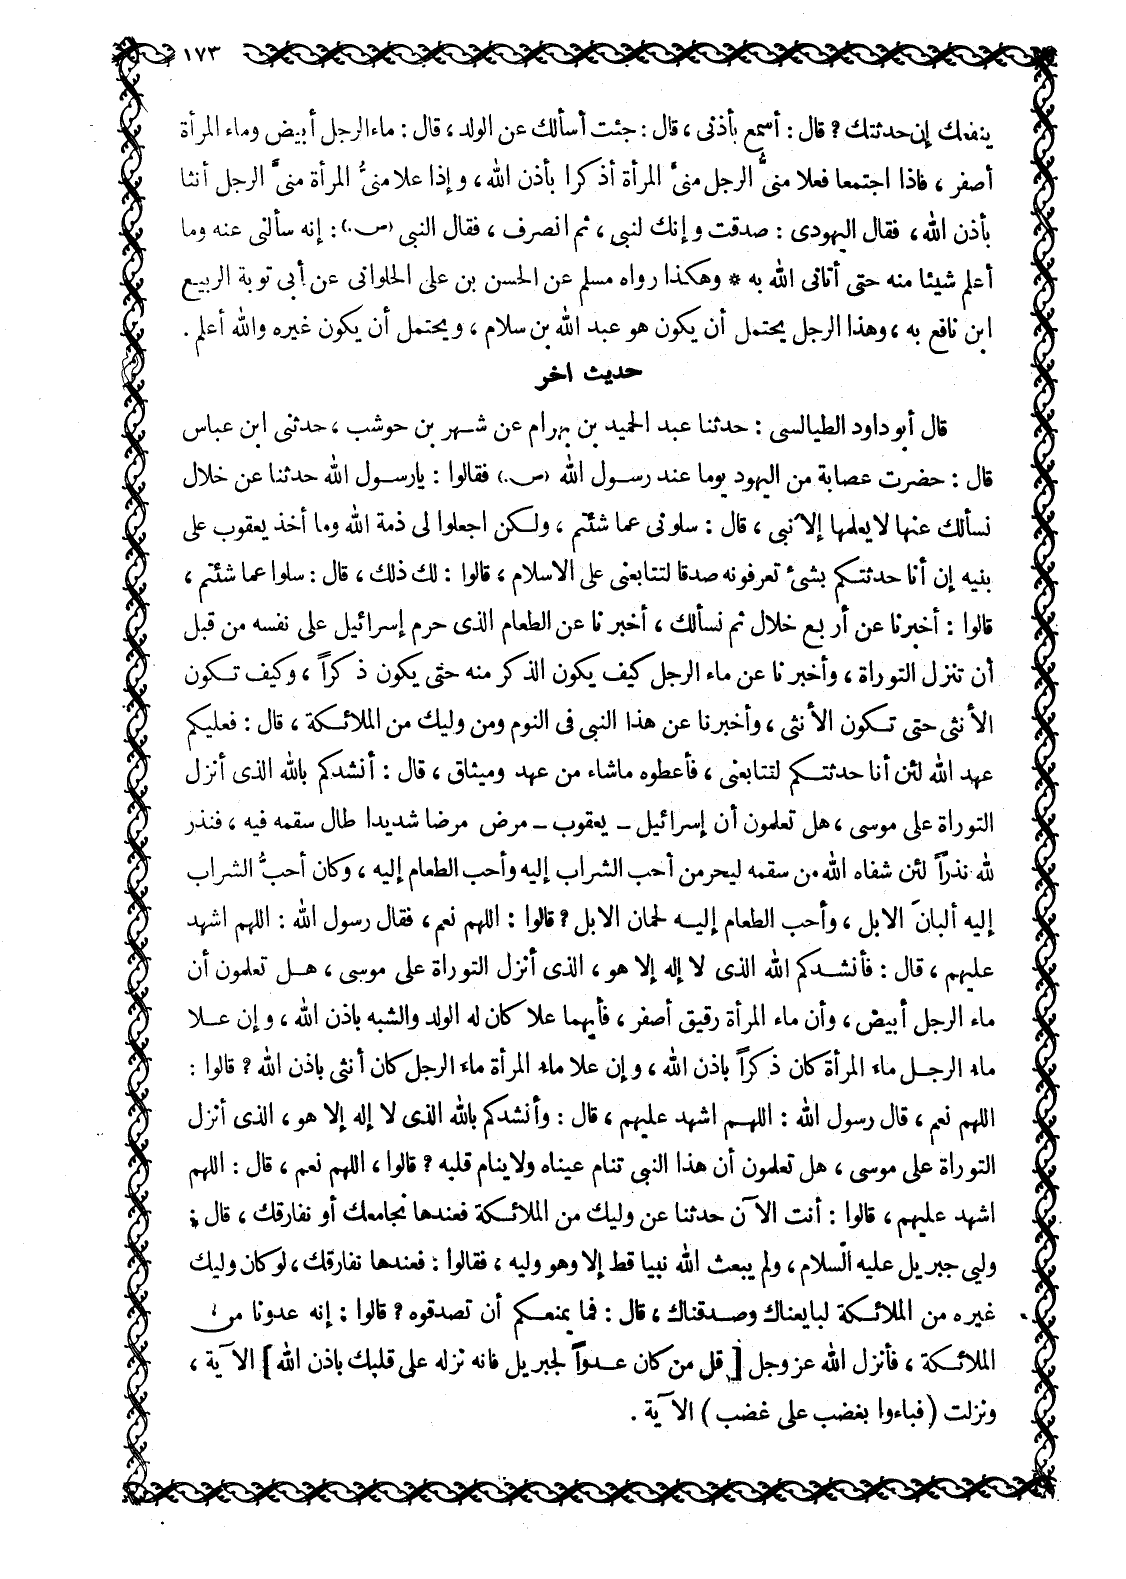 ١٧٣
ينفعك إن حدثتك ? قال : أسمع بأذنى ، قال : جئت أسألك عن الولد ، قال : ماء الرجل أبيض وماء المرأة
أصفر ، فاذا اجتمعا فعلا منىُّ الرجل منىَّ المرأة أذكرا بأذن الله ، وإذا علا منىُّ المرأة منىَّ الرجل أنثا
بأذن الله ، فقال اليهودى : صدقت وإنك لنبى ، ثم انصرف ، فقال النبى (ص.) : إنه سألنى عنه وما
أعلم شيئا منه حتى أتانى الله به * وهكذا رواه مسلم عن الحسن بن على الحلوانى عن أبى توبة الربيع
ابن نافع به ، وهذا الرجل يحتمل أن يكون هو عبد الله بن سلام ، ويحتمل أن يكون غيره والله أعلم .
حديث اخر
قال أبو داود الطيالسى : حدثنا عبد الحميد بن بهرام عن شهر بن حوشب ، حدثنى ابن عباس
قال : حضرت عصابة من اليهود يوما عند رسول الله (ص.) فقالوا : يارسول الله حدثنا عن خلال
نسألك عنها لا يعلمها إلا نبى ، قال : سلونى عما شئتم ، ولكن اجعلوا لى ذمة الله وما أخذ يعقوب على
بنيه إن أنا حدثتكم بشئ تعرفونه صدقا لتتابعنى على الاسلام ، قالوا : لك ذلك ، قال : سلوا عما شئتم ،
قالوا : أخبرنا عن أربع خلال ثم نسألك ، أخبرنا عن الطعام الذى حرم إسرائيل على نفسه من قبل
أن تنزل التوراة ، وأخبرنا عن ماء الرجل كيف يكون الذكر منه حتى يكون ذكراً ، وكيف تكون
الأنثى حتى تكون الأنثى ، وأخبرنا عن هذا النبى فى النوم ومن وليك من الملائكة ، قال : فعليكم
عهد الله لئن أنا حدثتكم لتتابعنى ، فأعطوه ماشاء من عهد وميثاق ، قال : أنشدكم بالله الذى أنزل
التوراة على موسى ، هل تعلمون أن إسرائيل ـ يعقوب ـ مرض مرضا شديدا طال سقمه فيه ، فنذر
لله نذراً لئن شفاه الله من سقمه ليحرمن أحب الشراب إليه وأحب الطعام إليه ، وكان أحبُّ الشراب
إليه ألبانَ الابل ، وأحب الطعام إليه لحمان الابل ? قالوا : اللهم نعم ، فقال رسول الله : اللهم اشهد
عليهم ، قال : فأنشدكم الله الذى لا إله إلا هو ، الذى أنزل التوراة على موسى ، هل تعلمون أن
ماء الرجل أبيض ، وأن ماء المرأة رقيق أصفر ، فأيهما علا كان له الولد والشبه باذن الله ، وإن علا
ماء الرجل ماء المرأة كان ذكراً باذن الله ، وإن علا ماء المرأة ماء الرجل كان أنثى باذن الله ? قالوا :
اللهم نعم ، قال رسول الله : اللهم اشهد عليهم ، قال : وأنشدكم بالله الذى لا إله إلا هو ، الذى أنزل
التوراة على موسى ، هل تعلمون أن هذا النبى تنام عيناه ولا ينام قلبه ? قالوا ، اللهم نعم ، قال : اللهم
اشهد عليهم ، قالوا : أنت الآن حدثنا عن وليك من الملائكة فعندها نجامعك أو نفارقك ، قال :
وليى جبريل عليه السلام ، ولم يبعث الله نبيا قط إلا وهو وليه ، فقالوا : فعندها نفارقك ، لو كان وليك
غيره من الملائكة لبايعناك وصدقناك ، قال : فما يمنعكم أن تصدقوه ? قالوا : إنه عدونا من
الملائكة ، فأنزل الله عز وجل [ قل من كان عدواً لجبريل فانه نزله على قلبك باذن الله ] الآية ،
ونزلت ( فباءوا بغضب على غضب ) الآية .